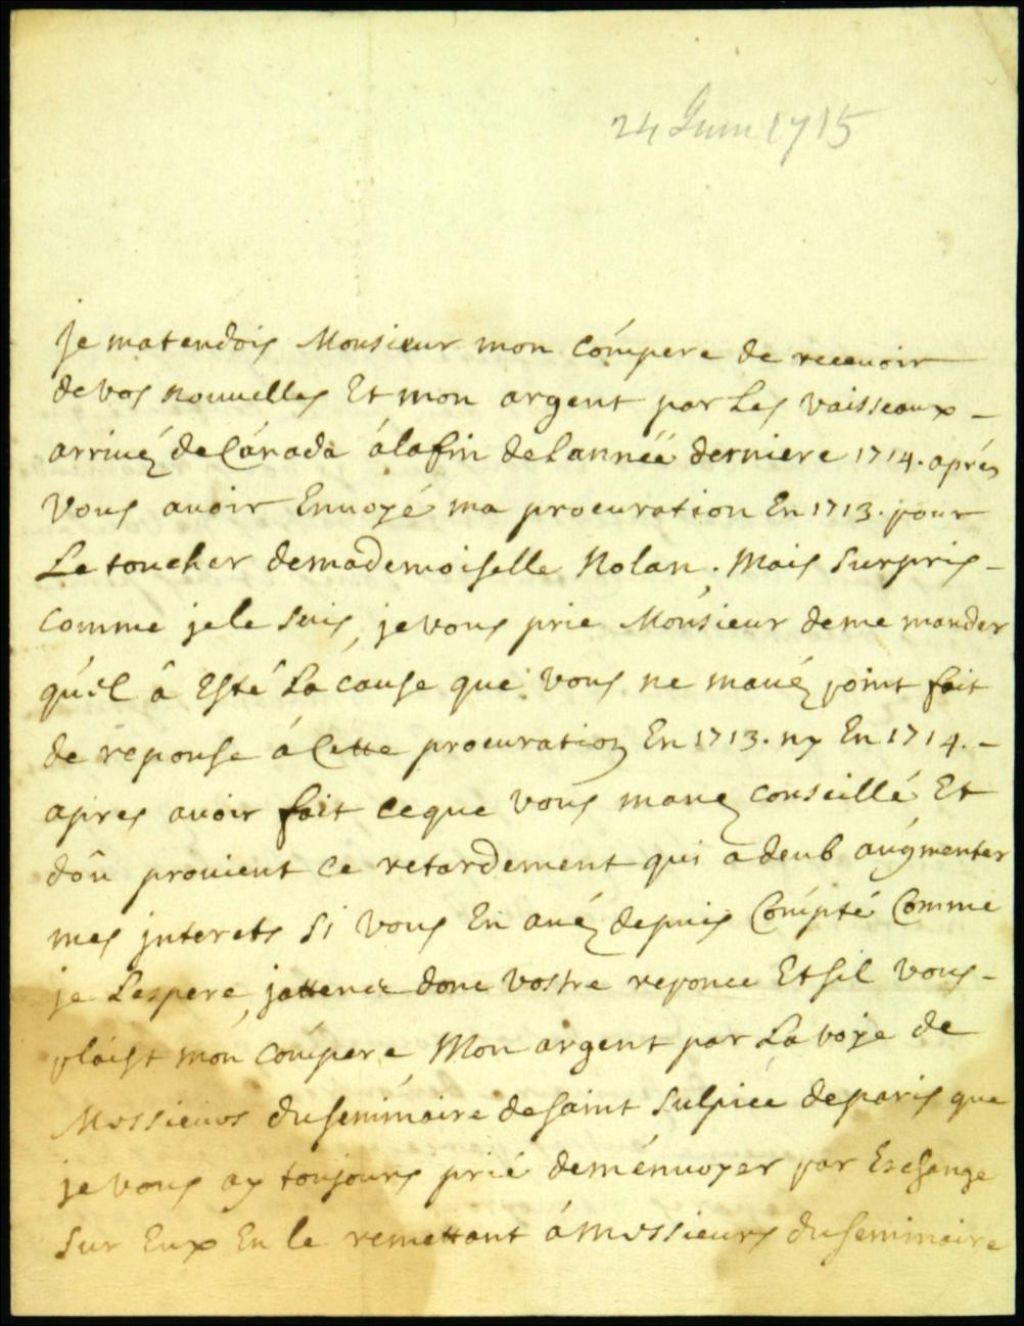 24 Juin 1715
je matendois Monsieur mon compere de recevoir
de vos nouvelles Et mon argent par Les vaisseaux
arrivéz de Canada á la fin de L'année derniere 1714. aprés
vous avoir Envoyé ma procuration En 1713. pour
Le toucher de mademoiselle Nolan. Mais surpris
comme je le suis, je vous prie Monsieur de me mander
qu'il â Esté La cause que vous ne m'avéz point fait
de reponse á Cette procuration En 1713. ny En 1714.
apres avoir fait ce que vous mavez conseillé Et
dôu provient ce retardement qui a deub augmenter
mes jnterets si vous En avéz depuis Compté Comme
je L'espere, jattends donc vostre reponce Et sil vous
plaist mon compere Mon argent par La voye de
Messieurs du seminaire de saint sulpice de paris que
je vous ay toujours prié de m'envoyer par Eschange
sur Eux En le remettant á Messieurs du seminaire